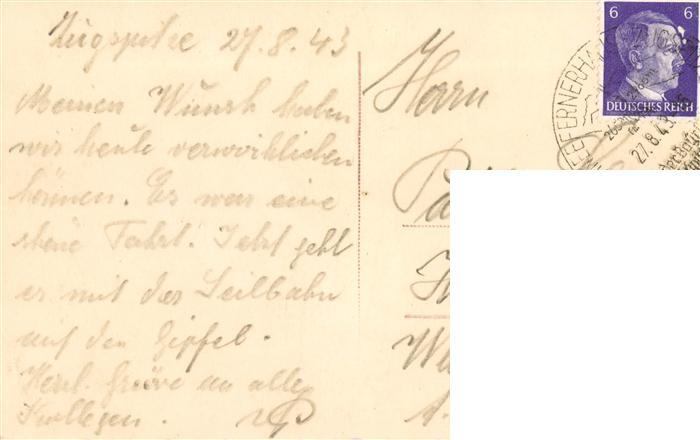 Zugspitze 27.8.43
Meinen Wunsch haben
wir heute verwirklichen
können. Es war eine
schöne Fahrt. Jetzt geht
es mit der Seilbahn
auf den Gipfel.
Herzl. Grüße an alle
Kollegen.
Herrn
6 6
DEUTSCHES REICH
27.8.43